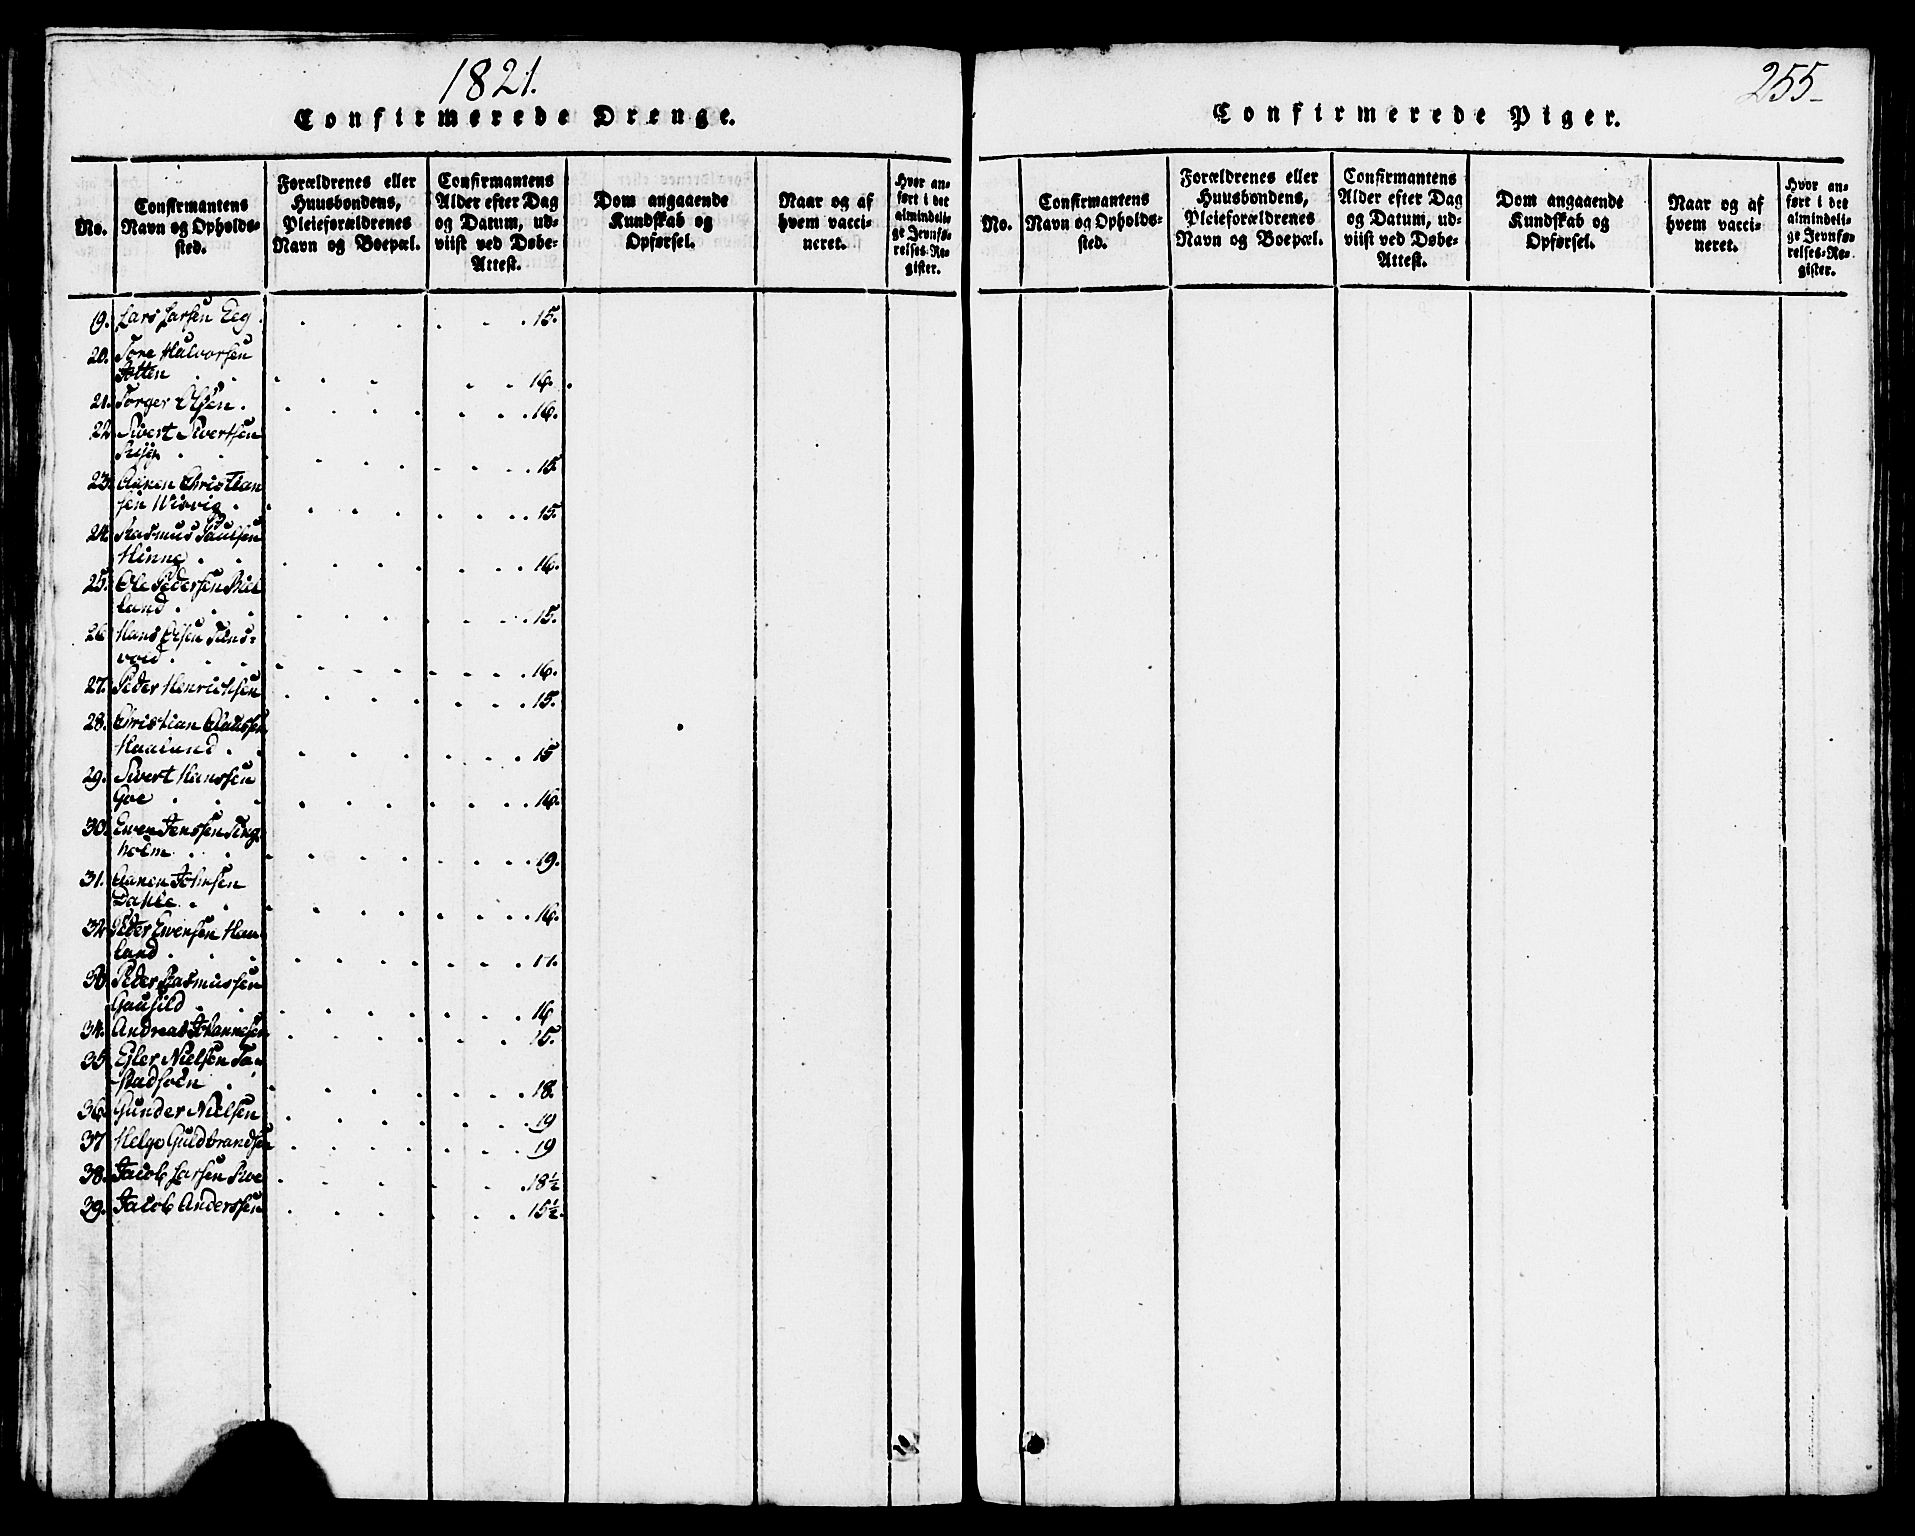 1821.
Confirmerede Drenge.
No.
Confirmantens
Navn og Opholds-
sted.
Forældrenes eller
Huusbondens,
Pleieforældrenes
Navn og Boepæl.
Confirmantens
Alder efter Dag
og Datum, ud-
viist ved Døbe-
Attest.
Dom angaaende
Kundskab og
Opførsel.
Naar og af
hvem vacci-
neret.
Hvor an-
ført i det
almindeli-
ge Jevnfø-
relses-Re-
gister.
19. Lars Larsen Eeg . . . . . . 15.
20. Tore Halvorsen
. . . . . 16.
21. Torger Olsen . . . . . 16.
22. Sivert Sivertsen
. . . . . 15
23. Aanen Christian
sen Wisvig . . . . . 15.
24. Rasmus Paulsen
Hinna . . . . . 16.
25. Ole Pedersen Bie
land . . . . . 15.
26. Hans Olsen
. . . . . 16.
27. Peder Henrichsen . . . . . 15.
28. Christian Clausen
Haaland . . . . . 15
29. Sivert Hanssen
Goe . . . . . 16.
30. Ewen Jenssen Ting
holm . . . . . 19.
31. Aanen Johnsen
Dahle . . . . . 16.
32. Peder Ewensen Haa
land . . . . . 17.
33. Peder Rasmussen
Gausild . . . . . 16
34. Andreas Johannesen . . . . . 15.
35. Eiler Nielsen Ta-
. . . . . 18.
36. Gunder Nielsen . . . . . 19
37. Helge Guldbrandsen . . . . . 19
38. Jacob Larsen Roe . . . . . 18½
39. Jacob Anderssen . . . . . 15½.
255-
Confirmerede Piger.
No.
Confirmantens
Navn og Opholds-
sted.
Forældrenes eller
Huusbondens,
Pleieforældrenes
Navn og Boepæl.
Confirmantens
Alder efter Dag
og Datum, ud-
viist ved Døbe-
Attest.
Dom angaaende
Kundskab og
Opførsel.
Naar og af
hvem vacci-
neret.
Hvor an-
ført i det
almindeli-
ge Jevnfø-
relses-Re-
gister.